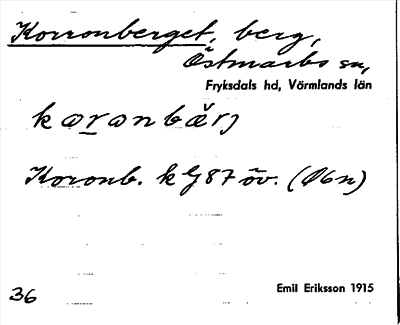 Korronberget, berg,
Östmarks sn,
Fryksdals hd, Värmlands län
Korronb. kG87 öv. (Ö6n)
36
Emil Eriksson 1915